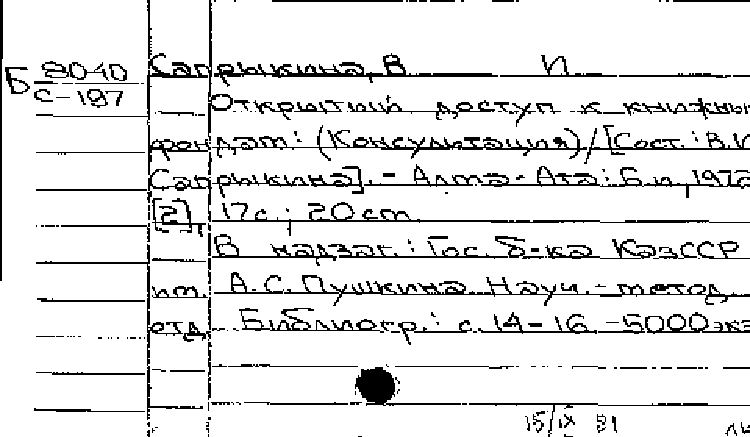 Б 8040
С-197
Сапрыкина, В И
Открытый доступ к книжны
фондам: (Консультация)/[Сост.: В.И
Сапрыкина]. - Алма-Ата: Б.и., 1972
[2], 17с.; 20 cm.
В надзаг.: Гос. б-ка КазССР
им. А.С. Пушкина. Науч.-метод
отд. Библиогр.: с. 14-16. -5000экз
15/IX 81